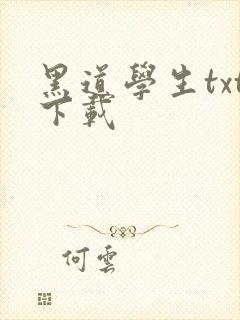 黑道學生txt
下載
何雲